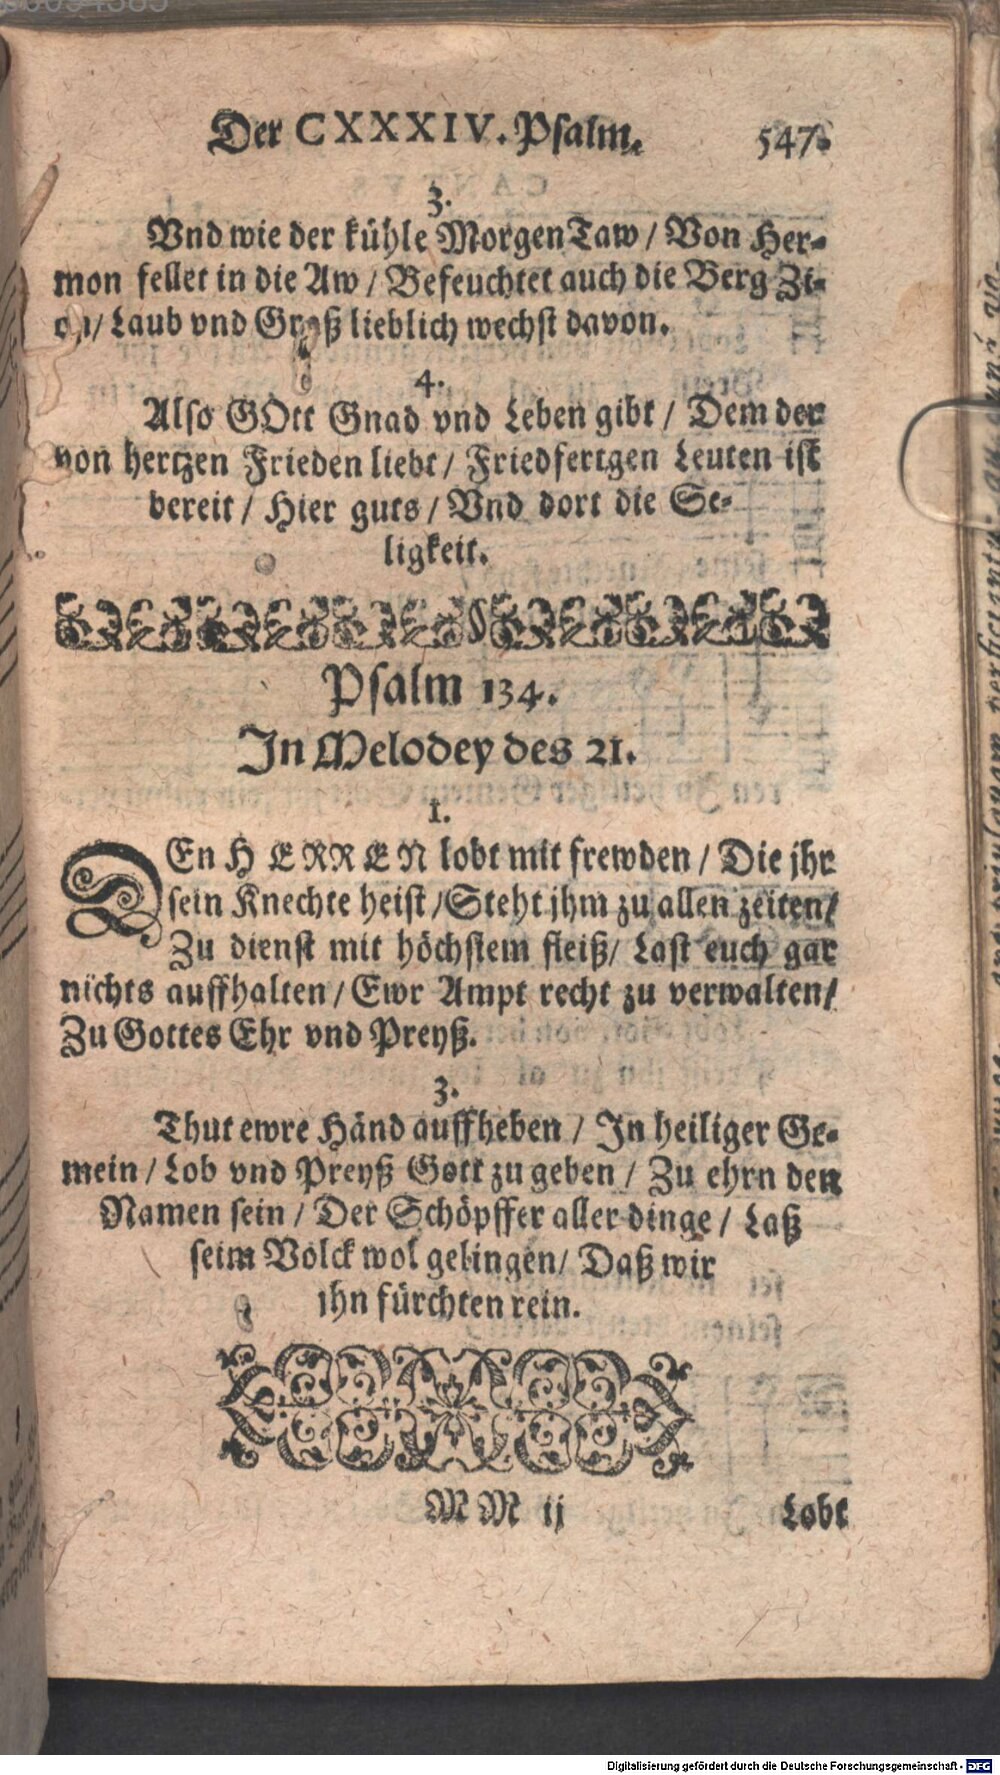 Der CXXXIV. Psalm. 547.
3.
Vnd wie der kühle MorgenTaw / Von Her-
mon fellet in die Aw / Befeuchtet auch die Berg Zi-
on / Laub vnd Graß lieblich wechst davon.
4.
Also GOtt Gnad vnd Leben gibt / Dem der
von hertzen Frieden liebt / Friedfertgen Leuten ist
bereit / Hier guts / Vnd dort die Se-
ligkeit.
Psalm 134.
In Melodey des 21.
1.
DEn HERREN lobt mit frewden / Die jhr
sein Knechte heist / Steht jhm zu allen zeiten /
Zu dienst mit höchstem fleiß / Last euch gar
nichts auffhalten / Ewr Ampt recht zu verwalten /
Zu Gottes Ehr vnd Preyß.
3.
Thut ewre Händ auffheben / In heiliger Ge-
mein / Lob vnd Preyß Gott zu geben / Zu ehrn den
Namen sein / Der Schöpffer aller dinge / Laß
seim Volck wol gelingen / Daß wir
jhn fürchten rein.
MM ij Lobt
Digitalisierung gefördert durch die Deutsche Forschungsgemeinschaft - DFG